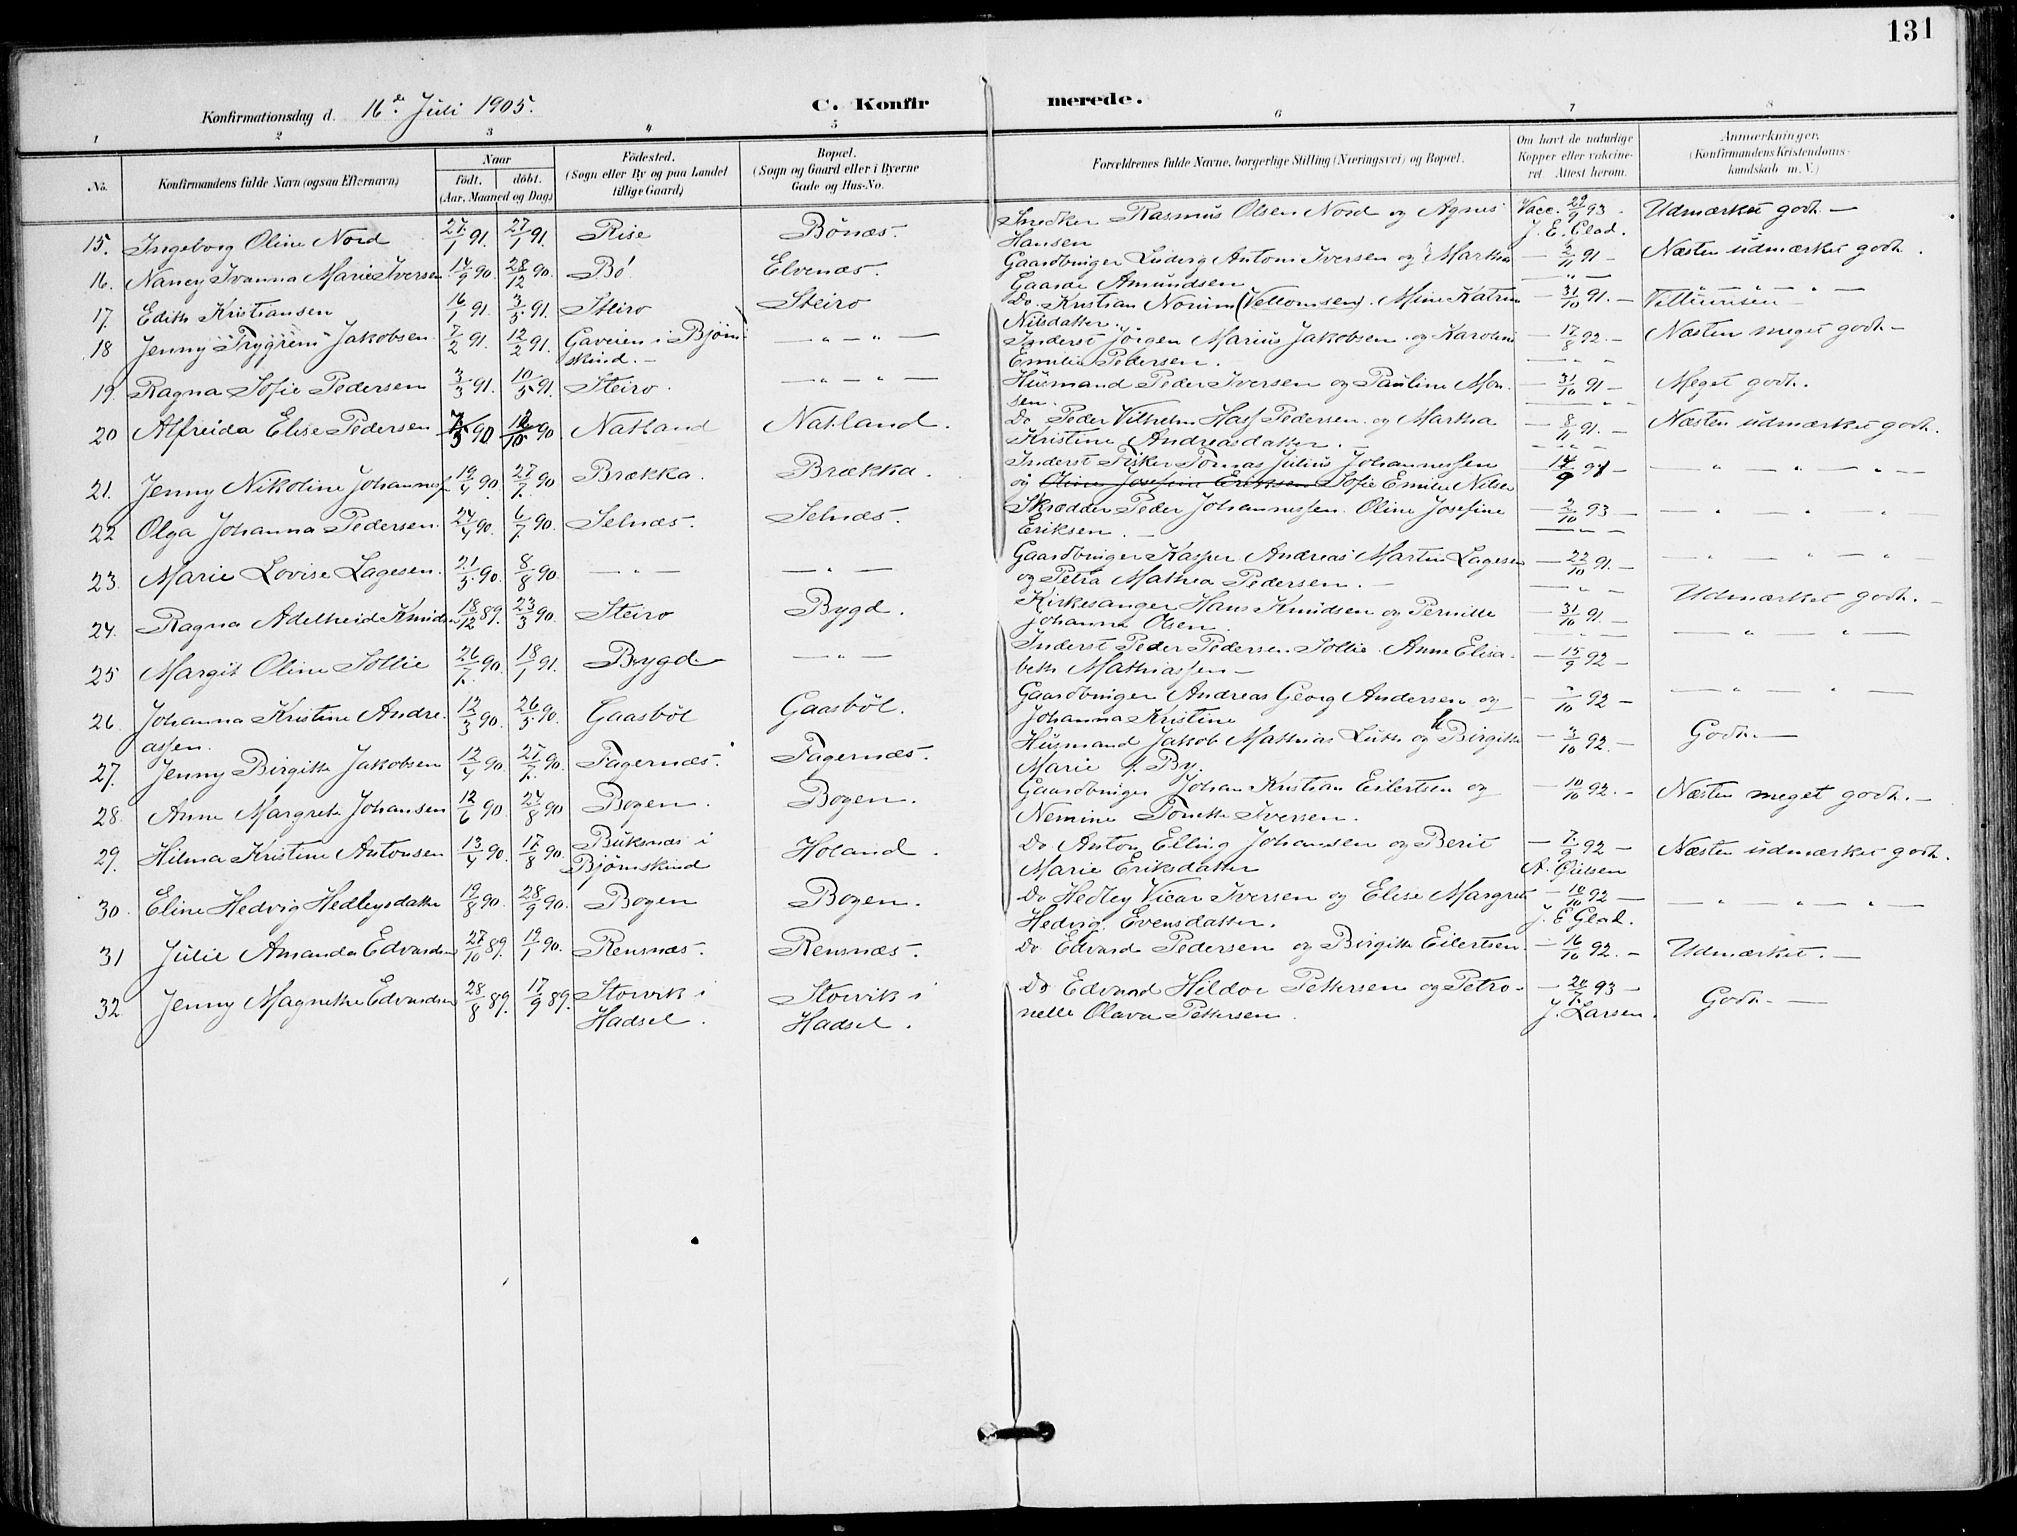 131
Konfirmationsdag d. 16de Juli 1905.
C. Konfirmerede.
1 2 3 4 5 6 7 8
No.
Konfirmandens fulde Navn (ogsaa Efternavn)
Naar
födt. döbt.
(Aar, Maaned og Dag)
Födested.
(Sogn eller By og paa Landet
tillige Gaard)
Bopæl.
(Sogn og Gaard eller i Byerne
Gade og Hus-No.
Forældrenes fulde Navne, borgerlige Stilling (Næringsvei) og Bopæl.
Om havt de naturlige
Kopper eller vakcine-
ret. Attest herom.
Anmærkninger.
(Konfirmandens Kristendoms-
kundskab m. V.)
15. Ingeborg Oline Nord 27/1 91. 27/1 91. Rise Bönæs. Snedker Rasmus Olsen Nord og Agnes Vacc. 22/9 93. Udmærket godt. —
Hansen J. E. Glad.
16. Nancy Ivanna Marie Iversen 14/9 90. 28/12 90. Bö. Elvenæs. Gaardbruger Ludvig Antoni Iversen og Martha — 2/11 91 — Næsten udmærket godt.
Gaarde Amundsen — " —
17. Edith Kristiansen 16/1 91. 3/5 91. Steiro Steiro Do. Kristian Norum (Vellomsen). Mine Katrin — 31/10 91. —
Nilsdatter.
18 Jenny "Trygrem" Jakobsen 7/2 91. 12/2 91. Gaveien i Bjørn- — " — " — Inderst Jörgen Marius Jakobsen og Karolin — 17/8 92. — Næsten meget godt —
skind. — Emilie Pedersen. — " —
19. Ragna Sofie Pedersen 3/3 91. 10/5 91. Steiro. — " — " — Husmand Peder Iversen og Pauline Mon- — 31/10 91 — Meget godt.
sen. — " —
20 Alfreida Elise Pedersen 90 90. Natland Natland. Do Peder Vilhelm Hass Pedersen og Martha — 8/11 91. — Næsten udmærket godt.
Kristine Andreasdatter. — — " —
21. Jenny Nikoline Johanness 19/4 90. 27/7. 90 Brækka. Brækka. Inderst Fisker Tomas Julius Johannessen — " — " — " —
og Oline Josefine Eriksen Sofie Emilie Nilsen
22 Olga Johanna Pedersen. 24/4 90. 6/7. 90. Selnæs. Selnæs. Skrædder Peder Johannessen. Oline Josefine — 2/10 93 — — " — " — " —
Eriksen. — — " —
23. Marie Lovise Lagesen. 21/5 90. 8/8 90. — " — — " — Gaardbruger Kasper Andreas Martin Lagesen — 22/10 91. — — " — " — " —
og Petra Mathea Pedersen. — — " —
24. Ragna Adelheid Knudsen 18/12 89. 23/3 90. Steiro Bygd. Kirkesanger Hans Knudsen og Pernille — 31/10 91 — Udmærket godt. —
Johanna Olsen — " —
25 Margit Oline Sollie 26/7. 90. 18/1 91. Bygd. — " — Inderst Peder Pedersen Sollie. Anne Elisa- — 15/9 92 — — " — " —
beth Mathiassen —
26. Johanna Kristine Andre- 12/3 90. 26/5. 90. Gaasböl Gaasböl. Gaardbruger Andreas Georg Andersen og — 92 — — " — " —
assen. Johanna Kristine
27. Jenny Birgitte Jakobsen 12/4 90. 27/7. 90. Fagernæs. Fagernæs. Husmand Jakob Mathias og Birgitte — 3/10 92. — Godt. —
Marie f. By.
28. Anne Margrete Johansen 12/6 90. 24/8 90 Bogen. Bogen. Gaardbruger Johan Kristian Eilertsen og — 10/10 92. — Næsten meget godt. —
Nemine Tonette Iversen.
29. Hilma Kristine Antonsen 13/4 90. 17/8 90. Buksnæs i Holand. Do Anton Elling Johansen og Berit — 7/9 92 — Næsten udmærket godt.
Bjørnskind Marie Eriksdatter
30. Eline Hedvig Hedleysdatter 19/8 90. 28/9 90. Bogen Bogen. Do Hedley Vicar Iversen og Elise Margrete — 10/10 92 — — " — " — " —
Hedvig Evensdatter. J. E. Glad.
31 Julie Amanda Edvardsen 27/10 89. 19/1 90. Rensnæs. Rensnæs. Do Edvard Pedersen og Birgitte Eilertsen — 16/10 92. — Udmærket. —
32 Jenny Magnethe Edvardsen 28/8 89. 17/9 89. Storvik i Storvik i Do Edvard Hildor Pettersen og Petro- — 20/7. 93 — Godt. —
Hadsel. Hadsel. nelle Olava Pettersen. J. Larsen.